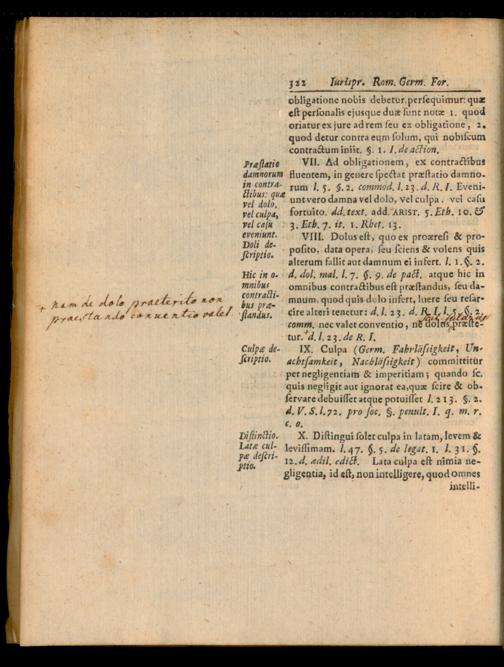 322 Iurispr. Rom. Germ. For.
obligatione nobis debetur, persequimur: quæ
est personalis ejusque duæ sunt notæ 1. quod
oriatur ex jure ad rem seu ex obligatione, 2.
quod detur contra eum solum, qui nobiscum
contractum iniit. §. 1. I. de action.
Præstatio
damnorum
in contra-
ctibus: quæ
vel dolo,
vel culpa,
vel casu
eveniunt.
Doli de-
scriptio.
VII. Ad obligationem, ex contractibus
fluentem, in genere spectat præstatio damno-
rum l. 5. §. 2. commod. l. 23. d. R. I. Eveni-
unt vero damna vel dolo, vel culpa, vel casu
fortuito. dd. text. add. ARIST. 5. Eth. 10. &
3. Eth. 7. it. 1. Rhet. 13.
VIII. Dolus est, quo ex proæresi & pro-
posito, data opera, seu sciens & volens quis
alterum fallit aut damnum ei infert. l. 1. §. 2.
Hic in o-
mnibus
contracti-
bus præ-
standus.
d. dol. mal. l. 7. §. 9. de pact. atque hic in
omnibus contractibus est præstandus, seu da-
mnum, quod quis dolo infert, luere seu resar-
cire alteri tenetur: d. l. 23. d. R. I. l. 5. §. 2.
comm. nec valet conventio, ne dolus præste-
tur. d. l. 23. de R. I.
+ nam de dolo praeterito non
praestando conventio valet
Culpæ de-
scriptio.
IX. Culpa (Germ. Fahrläßigkeit, Un-
achtsamkeit, Nachläßigkeit) committitur
per negligentiam & imperitiam; quando sc.
quis negligit aut ignorat ea, quæ scire & ob-
servare debuisset atque potuisset l. 213. §. 2.
d. V. S. l. 72. pro soc. §. penult. I. q. m. r.
c. o.
Distinctio.
Latæ cul-
pæ descri-
ptio.
X. Distingui solet culpa in latam, levem &
levissimam. l. 47. §. 5. de legat. 1. l. 31. §.
12. d. ædil. edict. Lata culpa est nimia ne-
gligentia, id est, non intelligere, quod omnes
intelli-